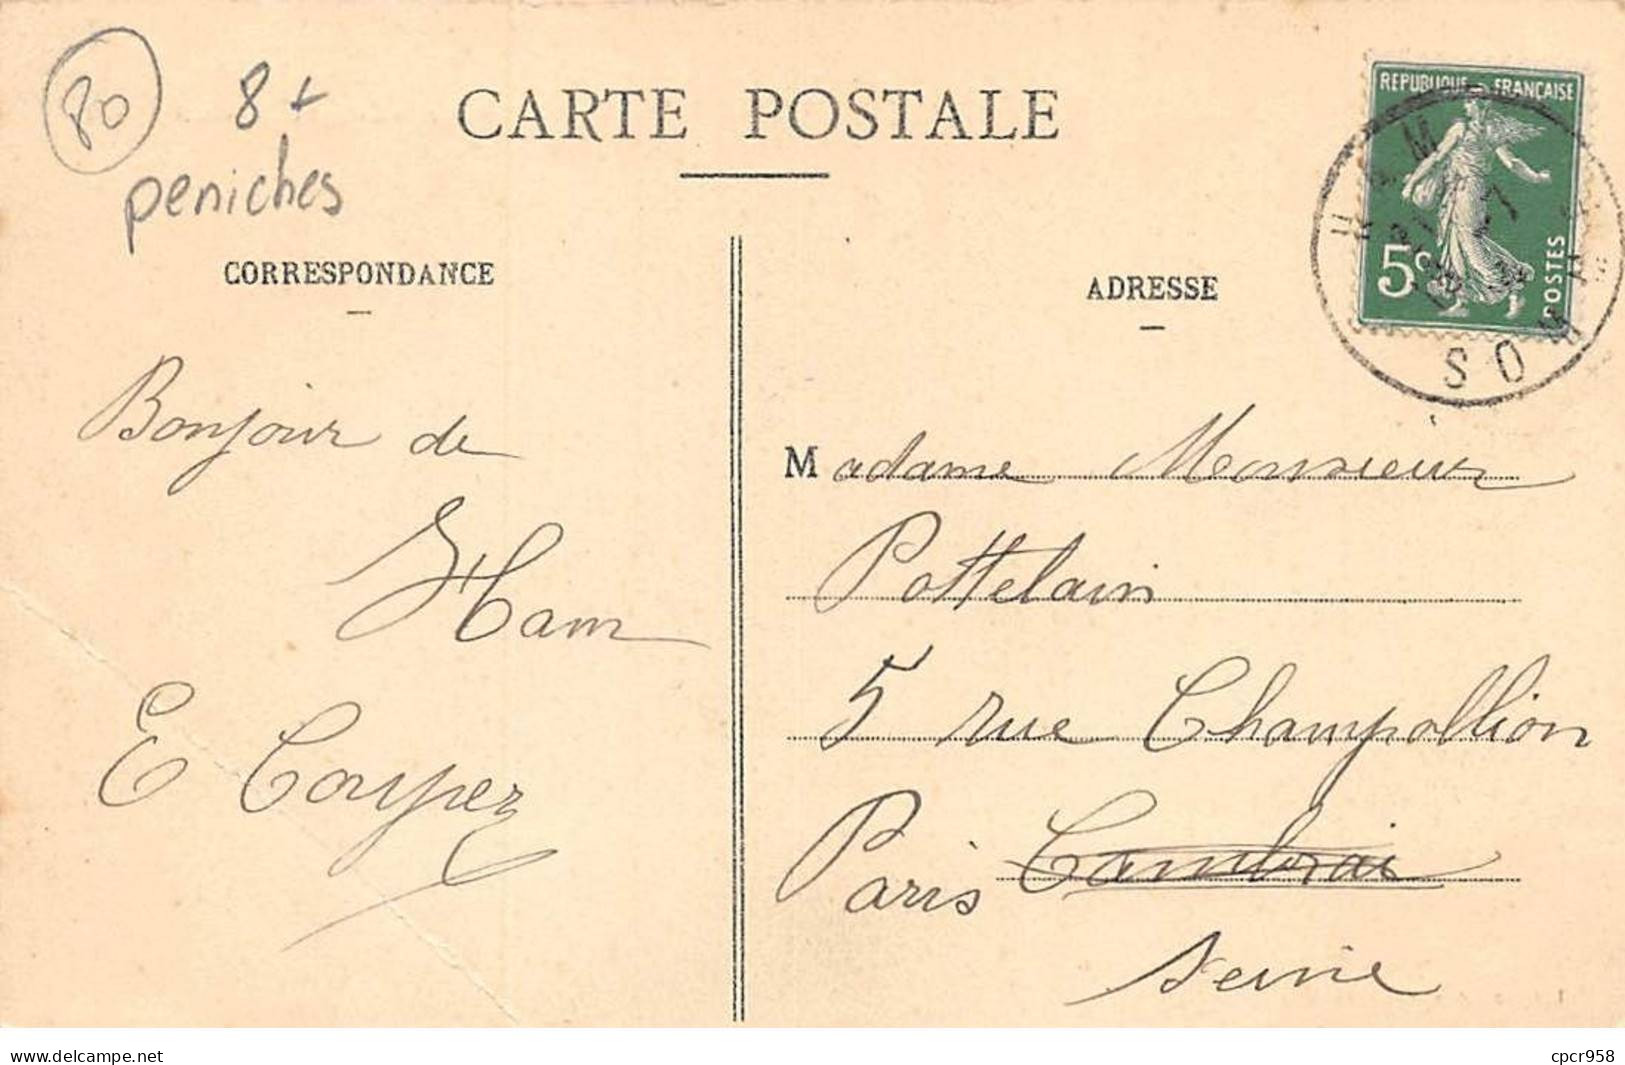 80
8+
peniches
CARTE POSTALE
REPUBLIQUE FRANÇAISE
5c
POSTES
HAM
SOMME
CORRESPONDANCE
ADRESSE
Bonjour de
Ham
E Coupez
Madame Monsieur
Pottelain
5 rue Champollion
Paris Cambrai
Seine
www.delcampe.net
cpcr958